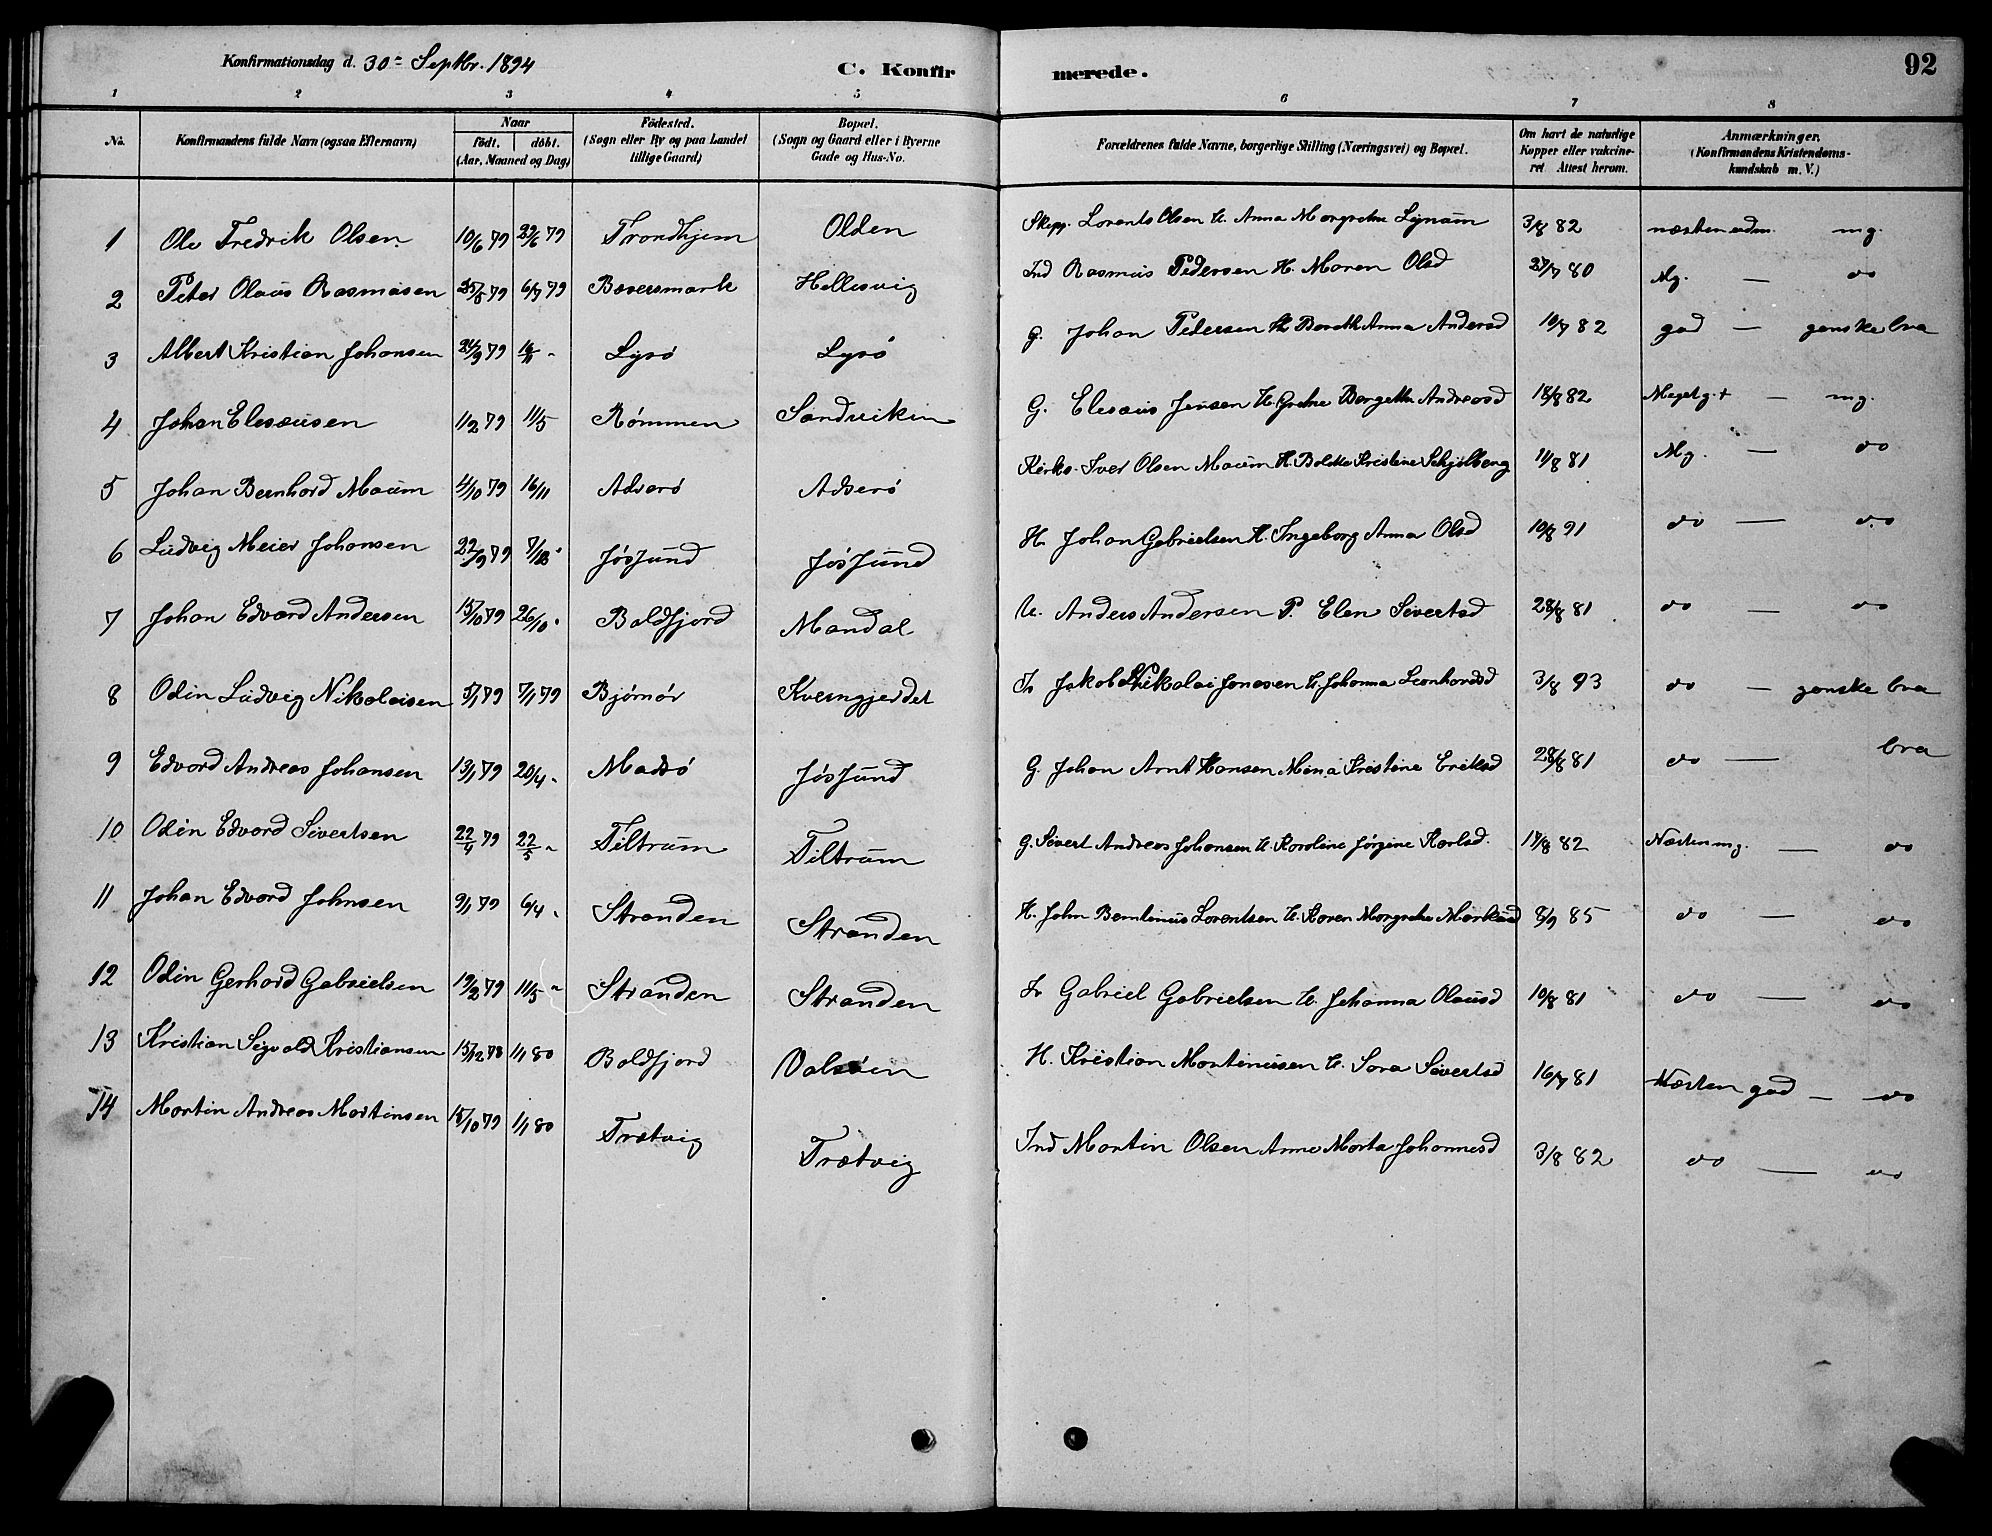 Konfirmationsdag d. 30- Septbr. 1894 C. Konfir merede. 92
1 2 3 4 5 6 7 8
No. Konfirmandens fulde Navn (ogsaa Efternavn) Naar født. døbt. (Aar, Maaned og Dag) Fødested. (Sogn eller By og paa Landet tillige Gaard) Bopæl. (Sogn og Gaard eller i Byerne Gade og Hus-No. Forældrenes fulde Navne, borgerlige Stilling (Næringsvei) og Bopæl. Om havt de naturlige Kopper eller vakcineret Attest herom. Anmærkninger. (Konfirmandens Kristendomskundskab m. V.)
1 Ole Fredrik Olsen 10/6 79 29/6 79 Trondhjem Olden Skipp. Lorents Olsen H. Anna Margrethe 3/8 82 næsten mg.
2 Peter Olaus Rasmusen 25/5 79 6/7 79 Hellesvig Ind Rasmus Pedersen H. Maren Olsd 27/7 80 Mg. — do
3 Albert Kristian Johansen 24/9 79 16/11 " Lysø Lysø G. Johan Pedersen H. Anna Andersd 10/7 82 god — ganske bra
4 Johan Elesæusen 11/2 79 11/5 Rømmen Sandviken G. Elesæus Jensen H. Grethe Bergette Andreasd 18/8 82 Meget g. + — mg.
5 Johan Bernhard Maum 4/10 79 16/11 Adserø Kirks. Iver Olsen Maum H. Kristine Schjelberg 11/8 81 Mg. — do
6 Ludvig Meier Johansen 22/9 79 7/12 " Jøssund Jøssund H. Johan Gabrielsen H. Ingeborg Anna Olsd 10/8 91 do — do
7 Johan Edvard Andersen 15/10 79 26/10 " Boldfjord Mandal U. Anders Andersen P. Elen Sivertsd 28/8 81 do — do
8 Odin Ludvig Nikolaisen 5/1 79 7/1 79 Bjørnør Kverngjerdet Is Jakob Nikolai Jonasen H. Johanna Leonhardsd 3/8 93 do — ganske bra
9 Edvard Andreas Johansen 13/1 79 20/4 " Madsø Jøssund G. Johan Arnt Hansen Mina Kristine Eriksd 28/8 81 do — bra
10 Odin Edvard Sivertsen 22/4 79 22/5 " Tiltrum Tiltrum G. Sivert Andreas Johansen H. Karoline Jørgine Karlsd. 17/8 82 Næsten mg. — do
11 Johan Edvard Johnsen 9/1 79 6/4 " Stranden Stranden H. John Lorentsen H. Karen Margrethe 8/9 85 do — do
12 Odin Gerhard Gabrielsen 19/2 79 11/5 " Stranden Stranden Is Gabriel Gabrielsen H. Johanna Olausd 10/8 81 do — do
13 Kristian Sigvald Kristiansen 15/12 78 1/1 80 Boldfjord Valsøen H. Kristian Martinusen H. Sara Sivertsd 16/7 81 Næsten god — do
14 Martin Andreas Martinsen 15/10 79 1/1 80 Trætvig Trætvig Ind Martin Olsen Anne Marta Johannesd 3/8 82 do — do